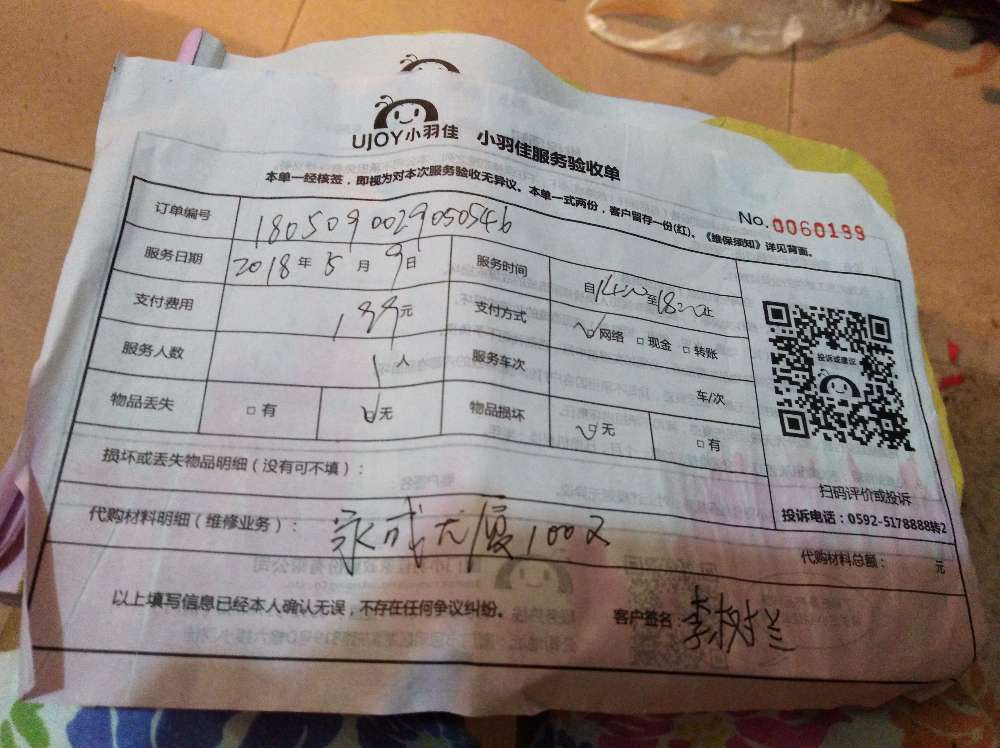 UJOY小羽佳 小羽佳服务验收单
本单一经核签，即视为对本次服务验收无异议。本单一式两份，客户留存一份(红)。《维保须知》详见背面。
No.0060199
订单编号 180509002905054b
服务日期 2018年5月9日 服务时间 自14:00至18:00止
支付费用 199元 支付方式 网络 现金 转账
服务人数 1人 服务车次 车/次
物品丢失 有 无 物品损坏 无 有
投诉或建议
扫码评价或投诉
投诉电话：0592-5178888转2
损坏或丢失物品明细（没有可不填）：
代购材料明细（维修业务）： 100
代购材料总额： 元
以上填写信息已经本人确认无误，不存在任何争议纠纷。
客户签名 李树兰